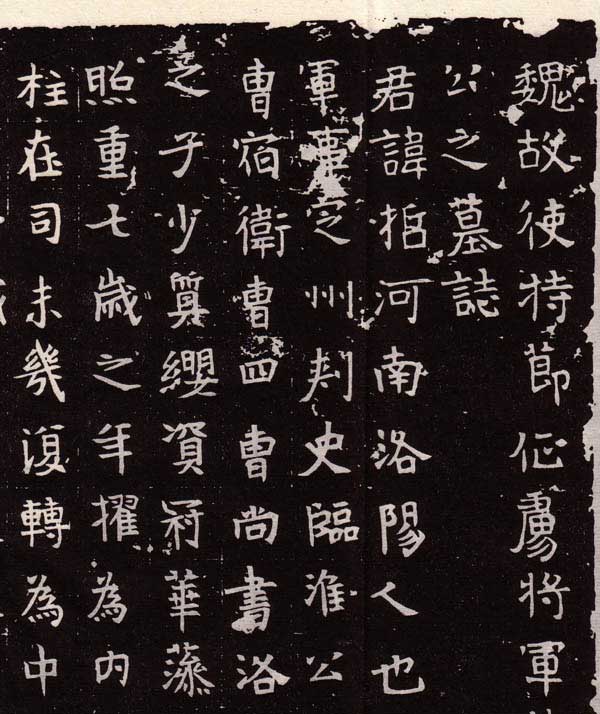 魏故使持節征虜將軍
公之墓誌
君諱河南洛陽人也
軍事定州刺史臨淮公
曹宿衛曹四曹尚書洛
之子少纓資冠華
照重七歲之年擢為內
柱在司未幾復轉為中